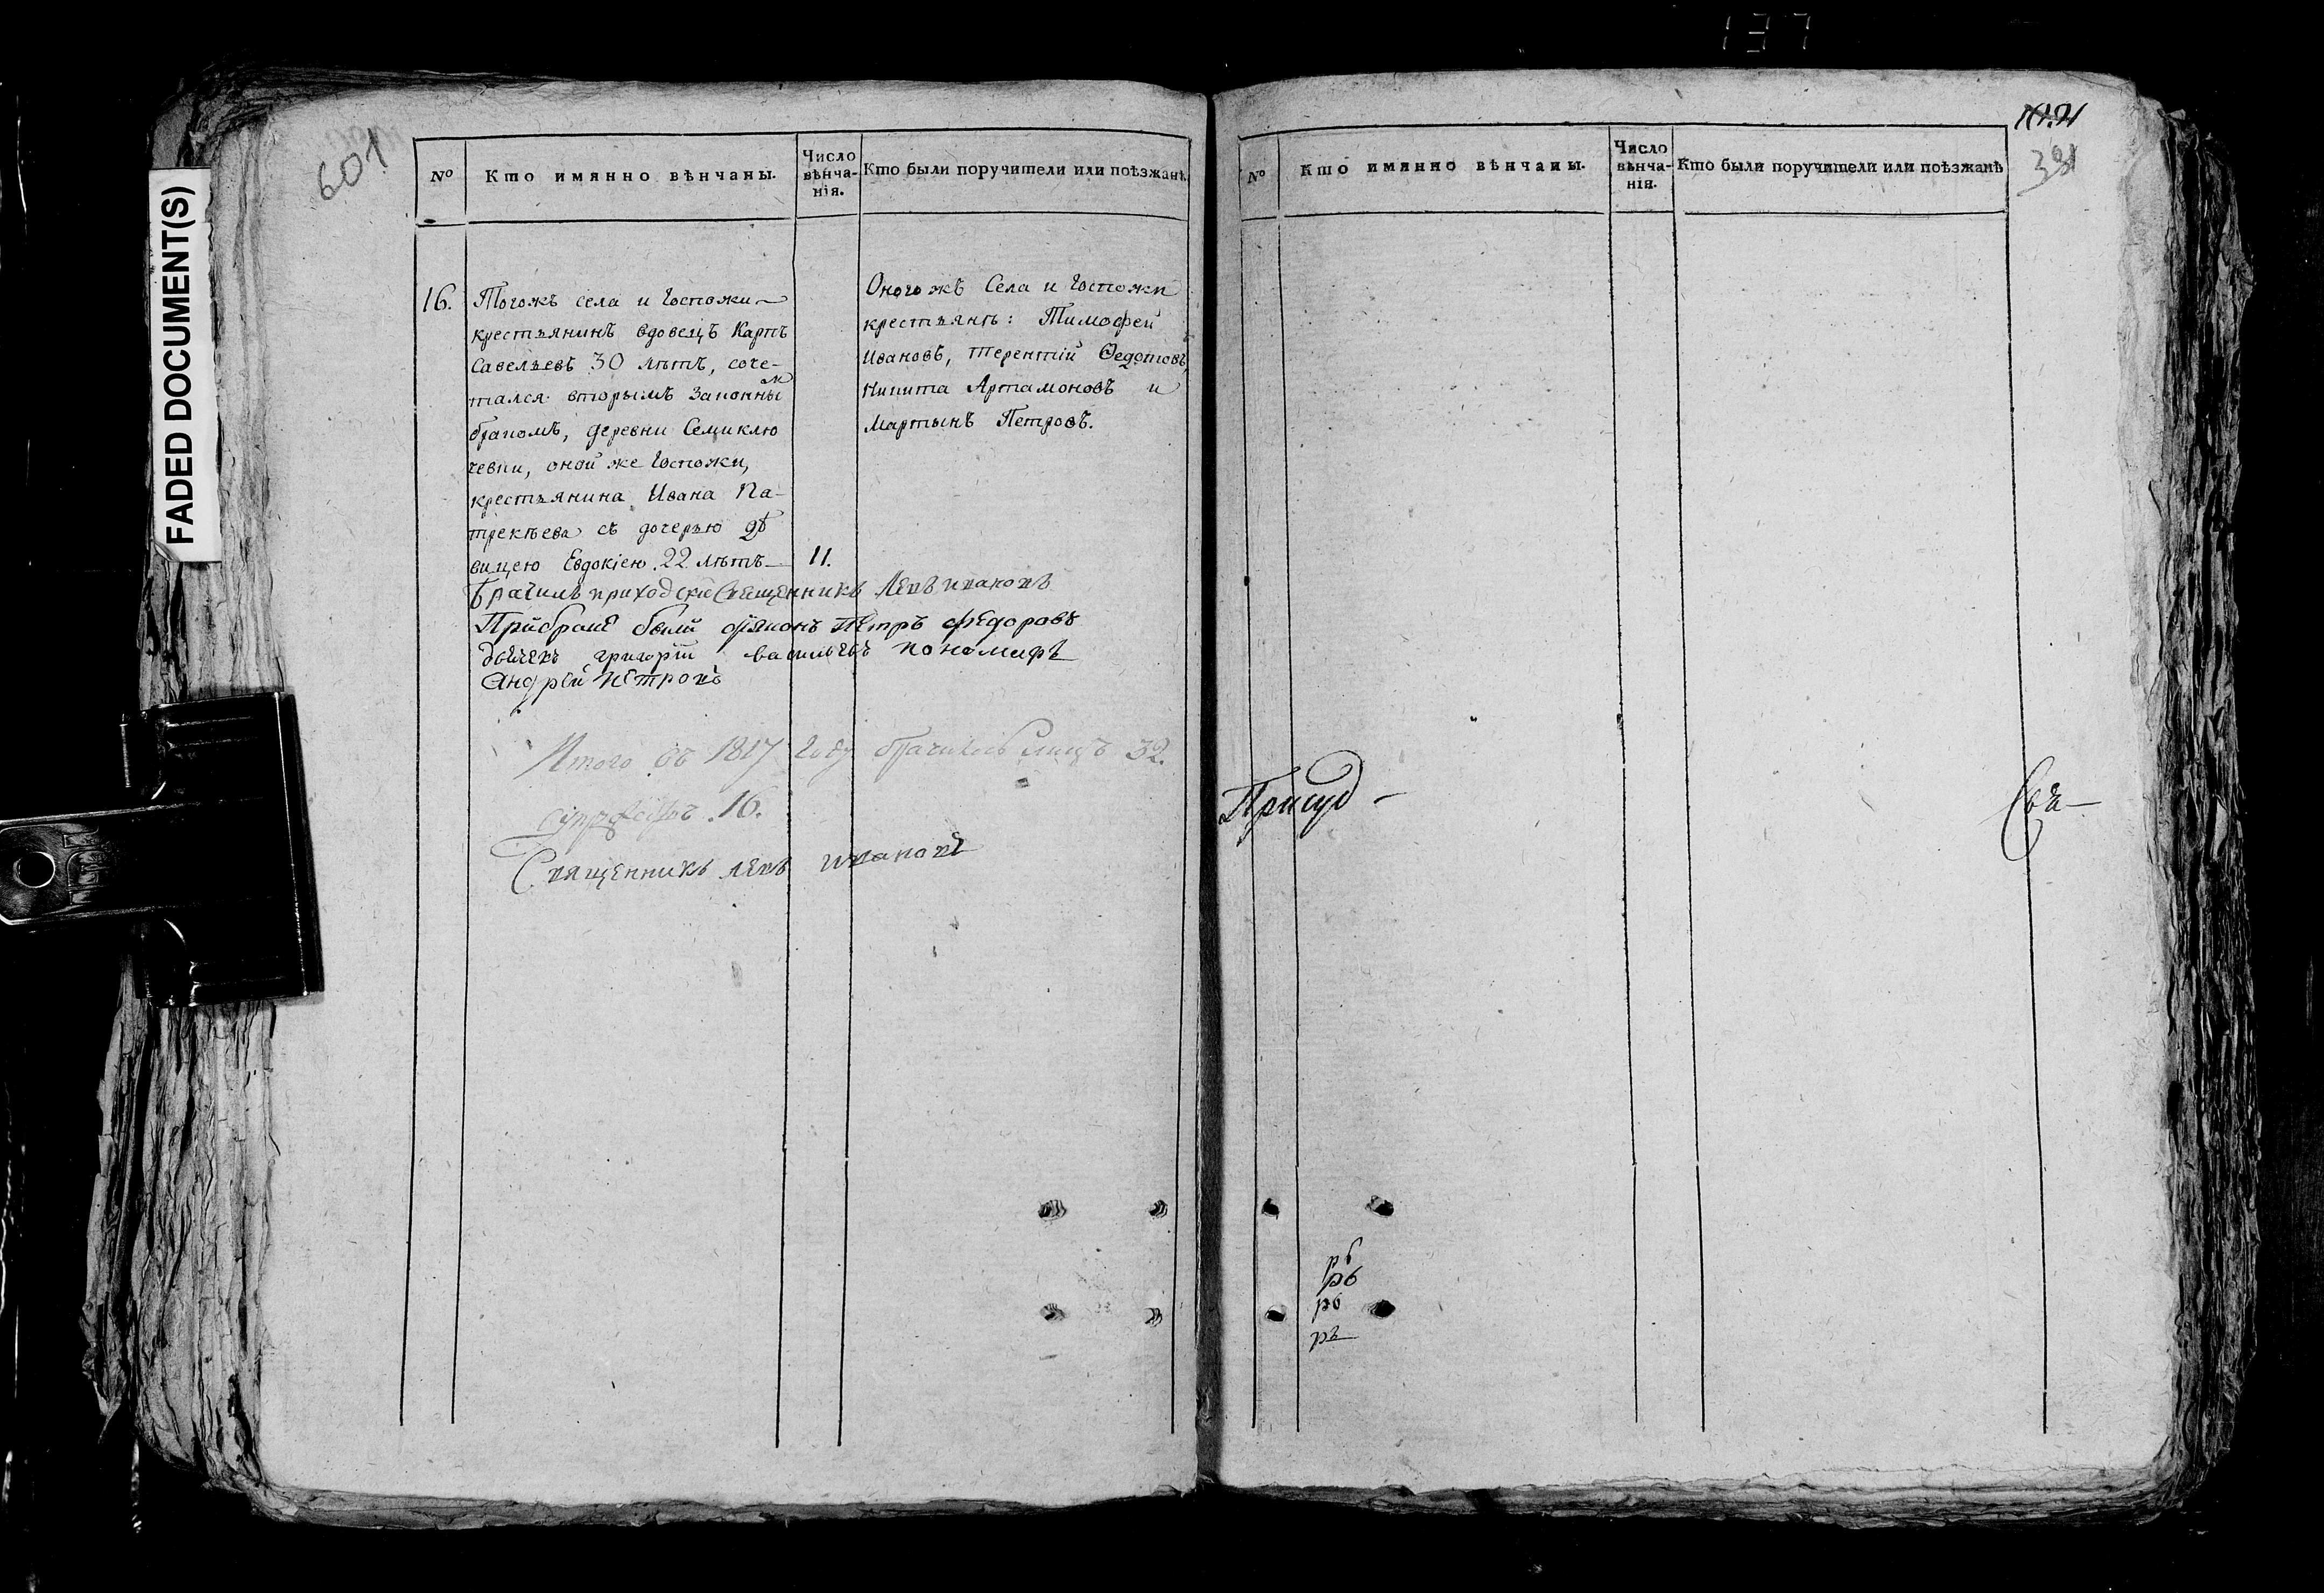 137
601
FADED DOCUMENT(S)
№ Кто имянно вѣнчаны. Число вѣнча-нія. Кто были поручители или поѣзжанѣ.
16. Тогожъ села и Госпожи
крестьянинъ вдовецъ Карпъ
Савельевъ 30 лѣтъ, соче-
тался вторымъ законны м
бракомъ, деревни Семиклю
чевки, оной же Госпожи,
крестьянина Ивана Па-
трекѣева съ дочерью дѣ
вицею Евдокіею 22 лѣтъ 11.
Оного жъ Села и Госпожи
крестьянѣ: Тимофей
Ивановъ, Терентій Ѳедотовъ,
Никита Артамоновъ и
Мартынъ Петровъ.
Брачилъ приходскій Священникъ Левъ Ивановъ
При браке были диаконъ Петръ Федоровъ
дьячекъ григорій васильевъ пономарь
Андрей Петровъ
Итого въ 1817 году брачилось лицъ 32.
16.
Священникъ левъ ивановъ
№ Кто имянно вѣнчаны. Число вѣнча-нія. Кто были поручители или поѣзжанѣ
Присуд – Свя–
рв
рв
рв